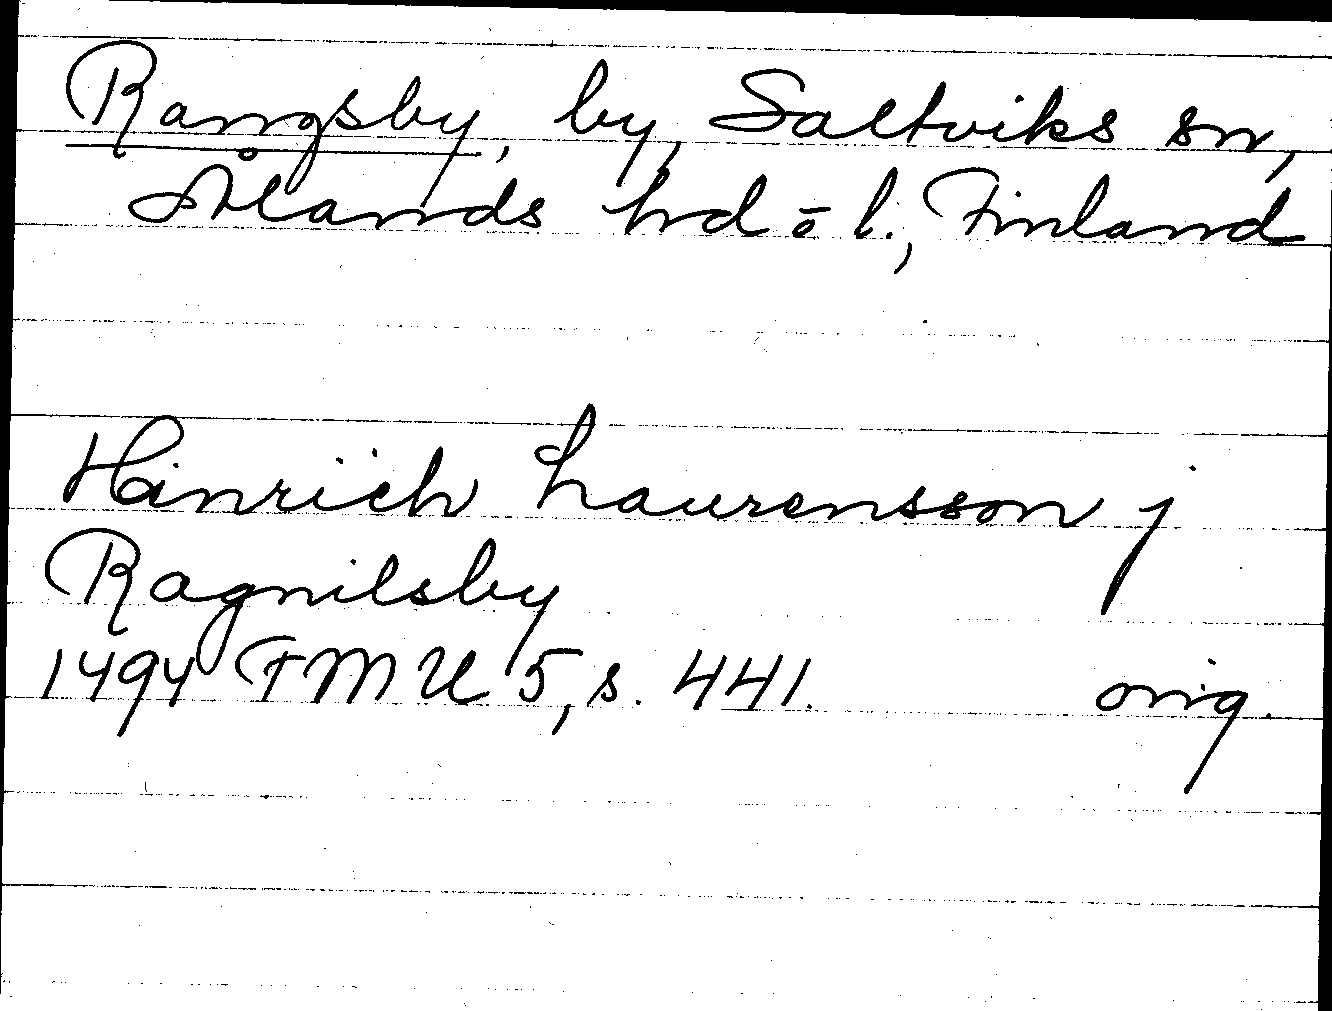 Rangsby, by, Saltviks sn,
Ålands hd o l., Finland
Hinrich Laurensson j
Ragnilsby
1494 FMU 5, s. 441. orig.